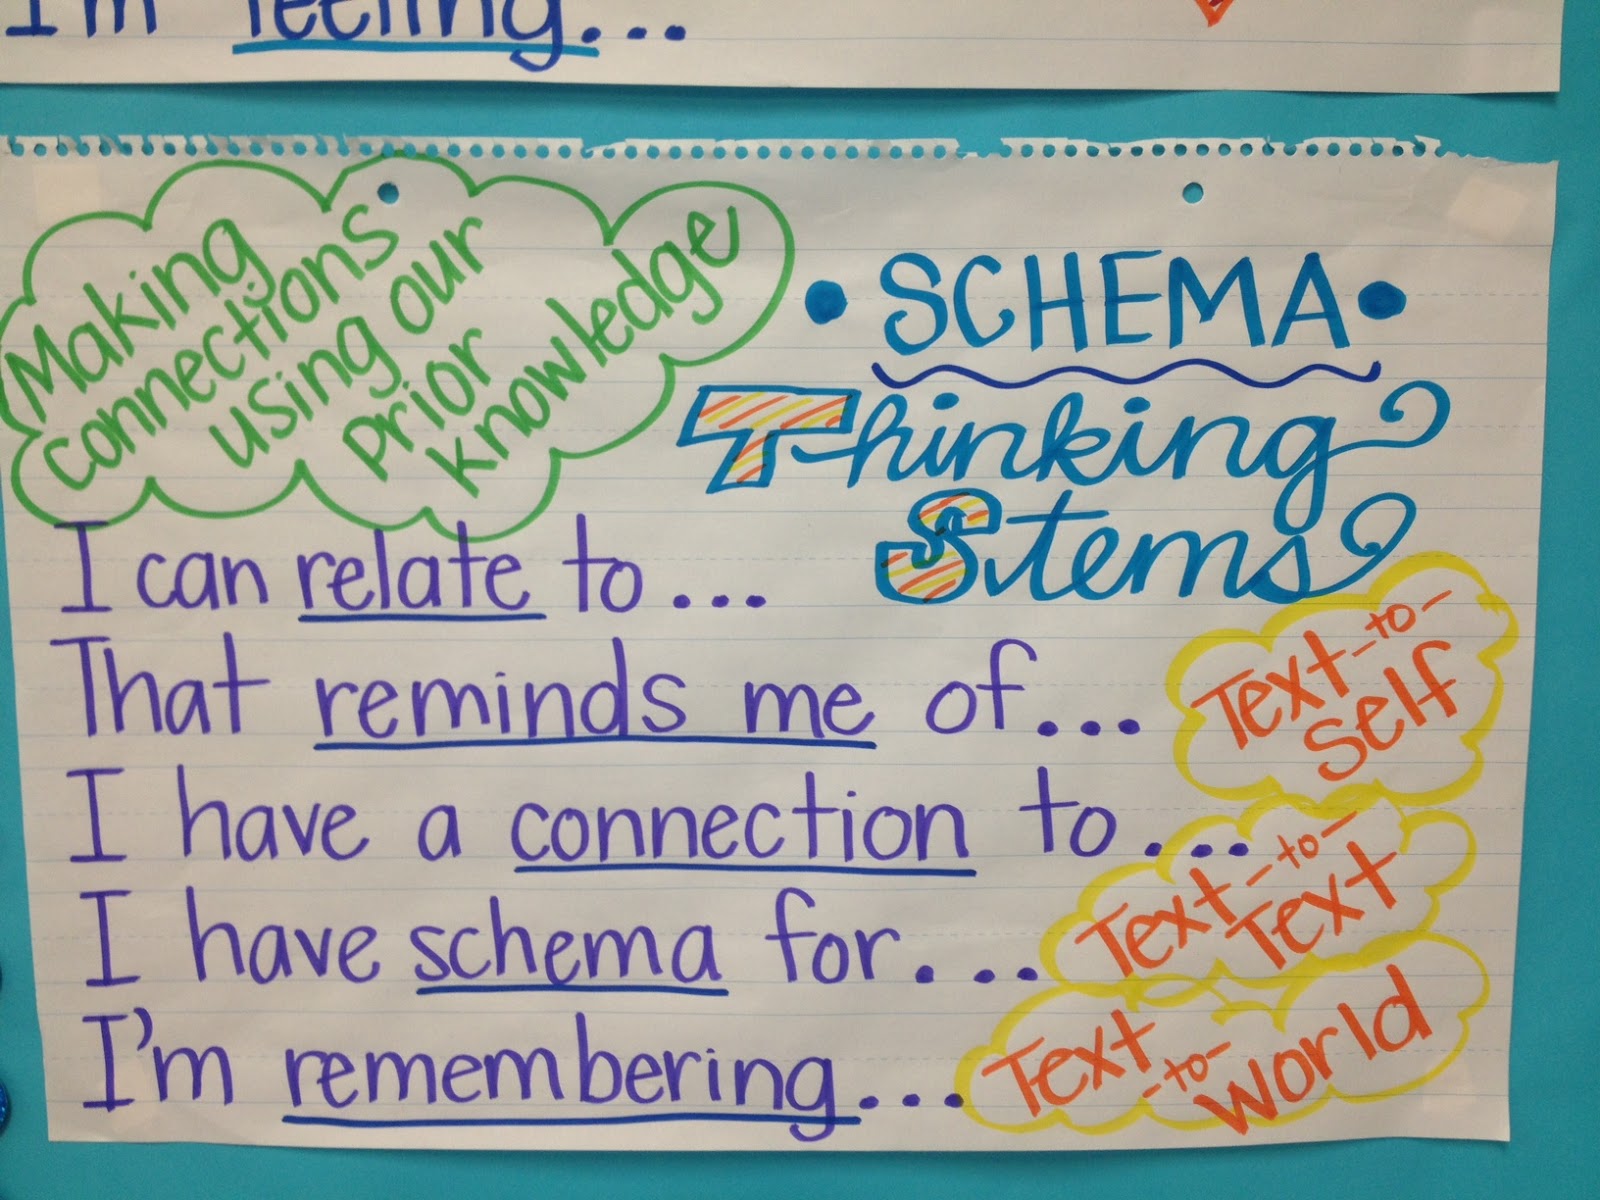 I'm feeling...
Making
connections
using our
prior
knowledge
• SCHEMA •
Thinking
Stems
I can relate to...
That reminds me of...
I have a connection to...
I have schema for...
I'm remembering...
Text-to-
Self
Text-to-
Text
Text
-to-
World